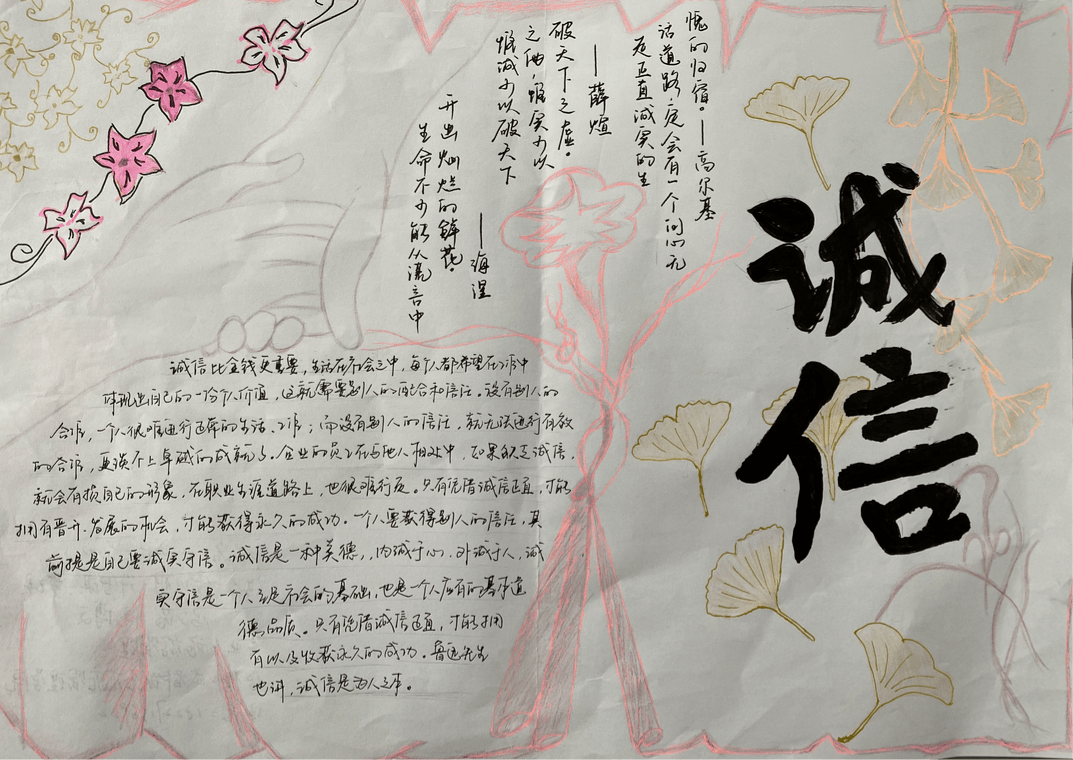 诚信
走正直诚实的生
活道路定会有一个问心无
愧的归宿。——高尔基
惟诚可以破天下
之伪，惟实可以
破天下之虚。
——薛煊
生命不可能从谎言中
开出灿烂的鲜花。
——海涅
诚信比金钱更重要，生活在社会之中，每个人都希望在工作中
体现出自己的一份个人价值，这就需要别人的配合和信任。没有别人的
合作，一个人很难进行正常的生活、工作；而没有别人的信任，就无法进行有效
的合作，更谈不上卓越的成就了。企业的员工在与他人相处中，如果缺乏诚信，
就会有损自己的形象，在职业生涯道路上，也很难行走。只有凭借诚信正直，才能
拥有晋升、发展的机会，才能获得永久的成功。一个人要获得别人的信任，其
前提是自己要诚实守信。诚信是一种美德，内诚于心，外诚于人，诚
实守信是一个人立足社会的基础，也是一个人应有的基本道
德品质。只有凭借诚信正直，才能拥
有以及收获永久的成功。鲁迅先生
也讲，诚信是为人之本。